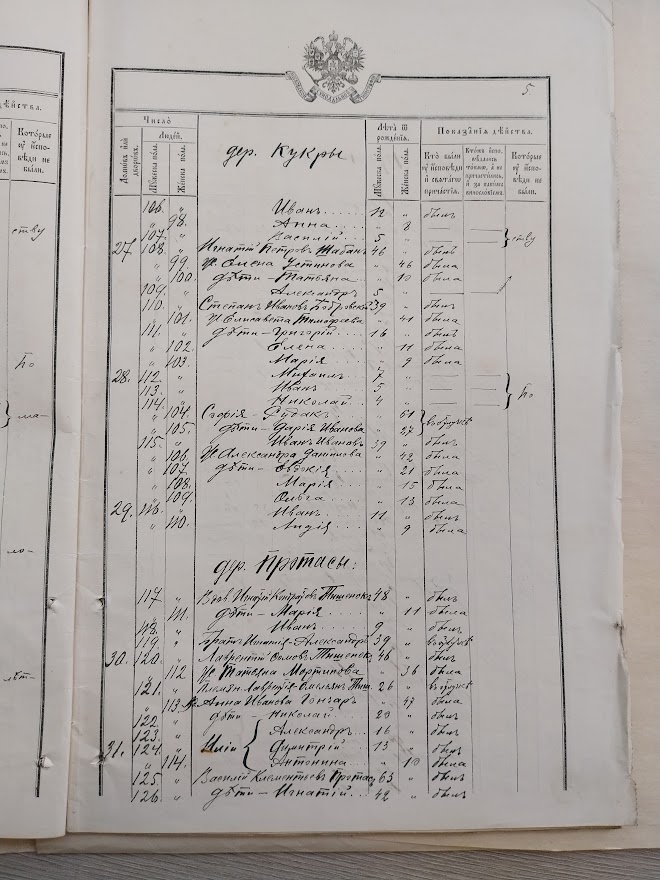 5
дѣйства.
Которые
ѹ҆ испо-
вѣди не
были.
ству
По
ма-
ло-
лѣт-
Число
Людей.
Домовъ или дворовъ.
Мѹжеска пола.
Женска пола.
Лѣта ѿ рожденія.
Мѹжеска пола.
Женска пола.
Показанія дѣйства.
Кто были ѹ҆ исповѣди и свѧтагѡ причастіѧ.
Которые ѹ҆ исповѣди не были.
дер. Кукры
106. " Иванъ 12 " былъ
" 98. Анна " 8
107. " Василій 5 " ству
27. 108. " Игнатій Петровъ Шабанъ 46 " былъ
" 99. ж. Елена Устинова " 46 была
" 100. дѣти - Татьяна " 10 была
109. " Александръ 5 "
110. " Степанъ Ивановъ 39 " былъ
" 101. ж. Елисавета Тимофеева " 41 была
111. " дѣти - Григорій 16 " былъ
" 102. Елена " 11 была
" 103. Марія " 9 была
28. 112. " Михаилъ 7 "
113. " Иванъ 5 " По
114. " Николай 4 "
" 104. Софія - Судакъ " 61
" 105. дѣти - Дарія Иванова " 27
115. " Иванъ Ивановъ 39 " былъ
" 106. ж. Александра Данилова " 42 была
" 107. дѣти - Евдокія " 21 была
" 108. Марія " 15 была
" 109. Ольга " 13 была
29. 116. " Иванъ 11 " былъ
" 110. Лидія " 9 была
дер. Протасы:
117 " Вдов. 48 " былъ
" 111. дѣти - Марія " 11 была
118. " Иванъ 9 " былъ
119. " братъ Игнатія - Александръ 39 "
30. 120. " Лаврентій 46 " былъ
" 112 ж. Татьяна Мартинова " 36 была
121. " Племян. Лаврентія - Емельянъ 26 "
" 113. Анна Иванова Гончаръ " 47 была
122 " дѣти - Николай 20 " былъ
123. " Александръ 16 " былъ
31. 124. " Димитрій 13 " былъ
" 114. Антонина " 10 была
125 " Василій Клементіевъ 63 " былъ
126. " дѣти - Игнатій 42 " былъ